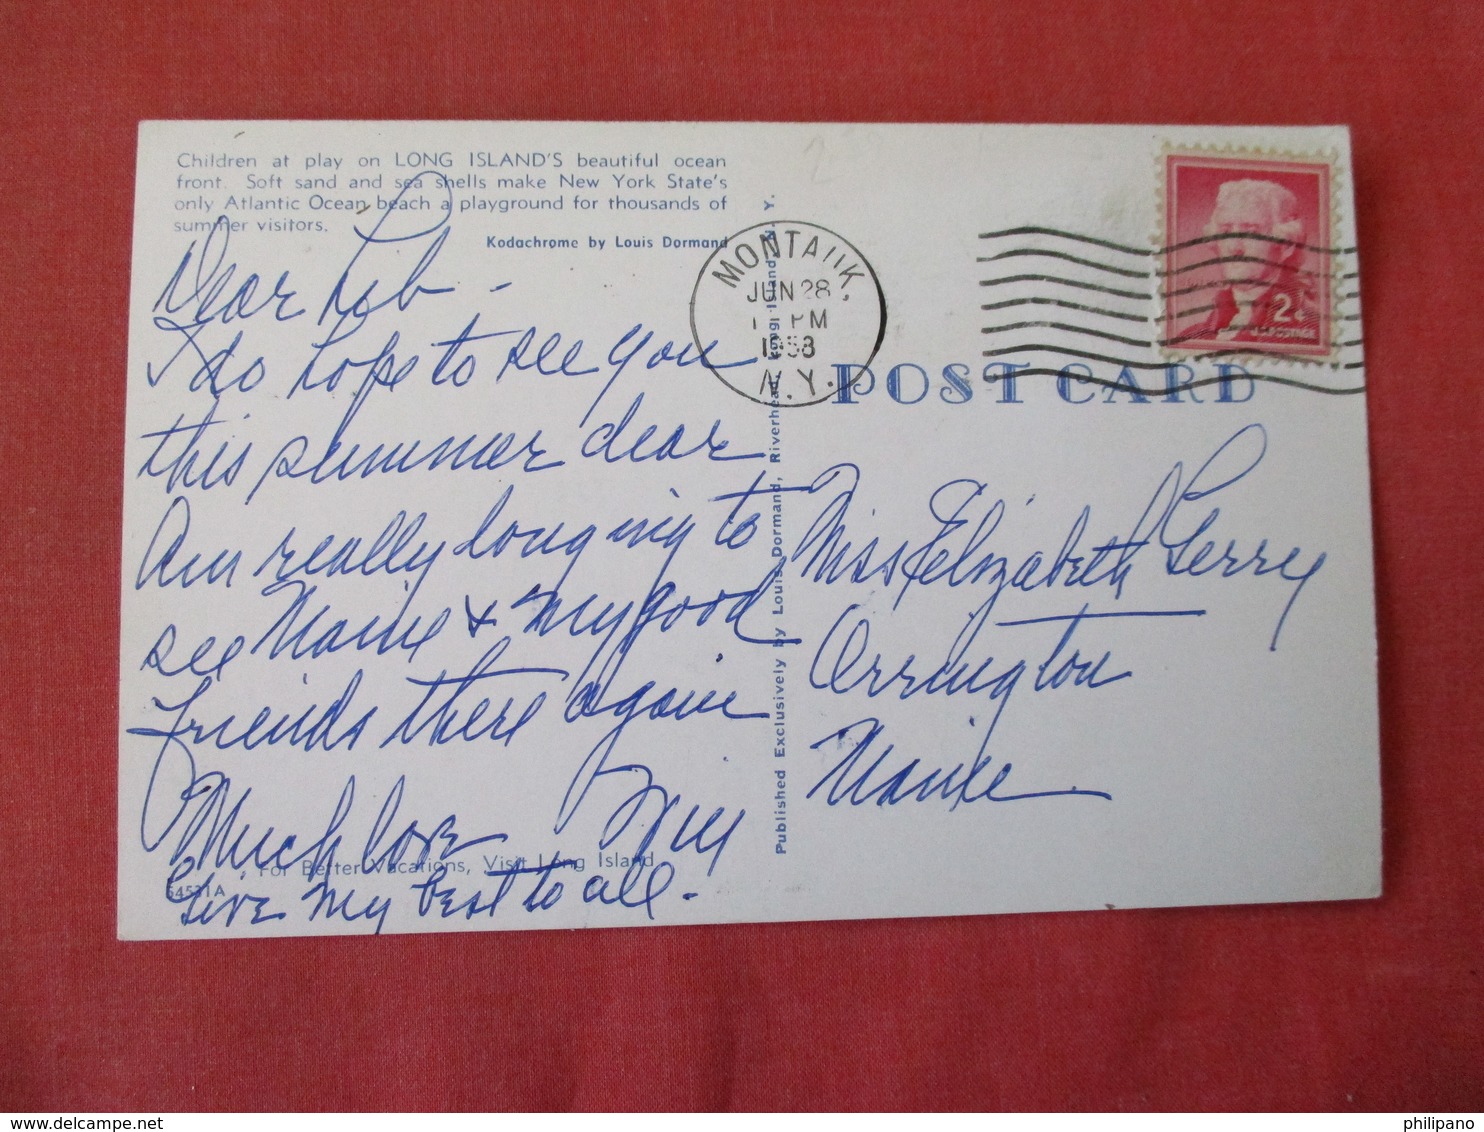 Children at play on LONG ISLAND'S beautiful ocean
front. Soft sand and sea shells make New York State's
only Atlantic Ocean beach a playground for thousands of
summer visitors.
Kodachrome by Louis Dormand
Dear Lib -
I do hope to see you
this summer dear
Am really longing to
see Maine & my good
friends there again
Much love
For Better Vacations, Visit Long Island
54531A
Give my best to all -
Published Exclusively by Louis Dormand, Riverhead, Long Island, N. Y.
MONTAUK,
JUN 28
PM
1958
N.Y.
2¢
U.S. POSTAGE
POST CARD
Miss Elizabeth
Orrington
Maine
philipano